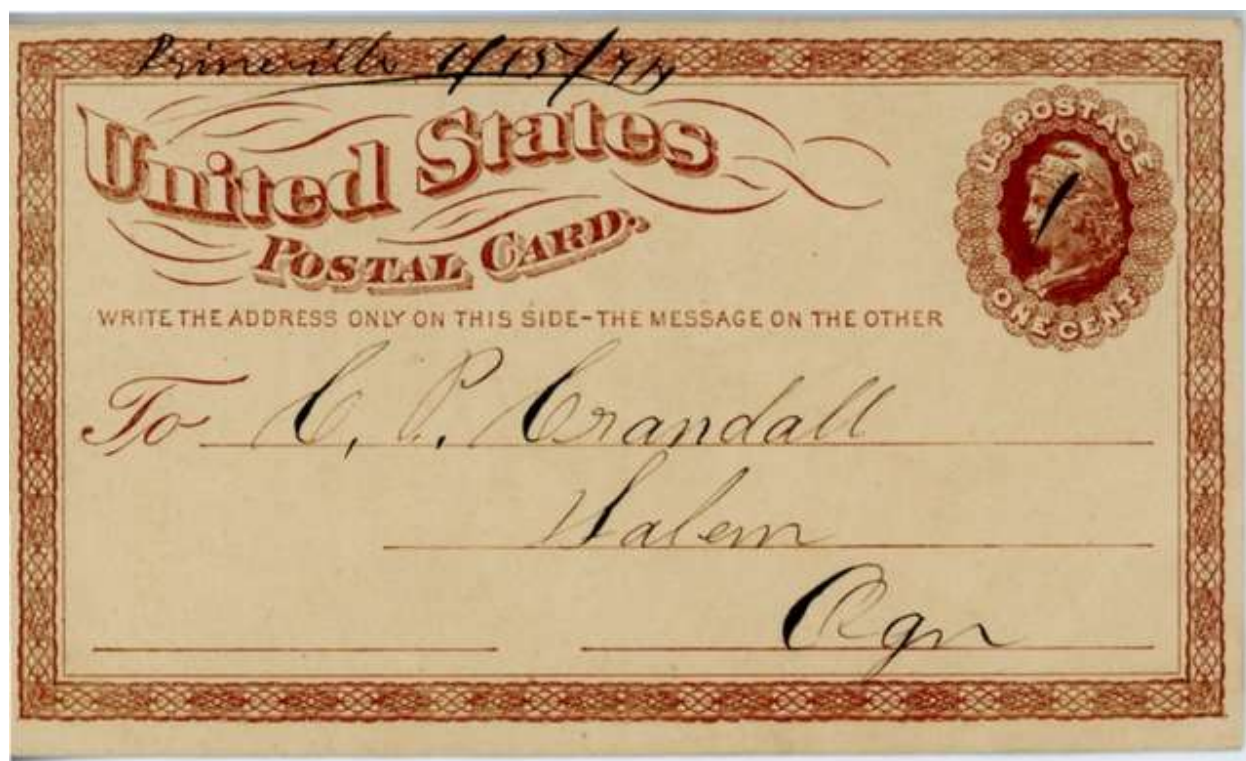 Prineville
United States
POSTAL CARD.
U.S. POSTAGE
ONE CENT
WRITE THE ADDRESS ONLY ON THIS SIDE-THE MESSAGE ON THE OTHER
To C. P. Crandall
Salem
Ogn